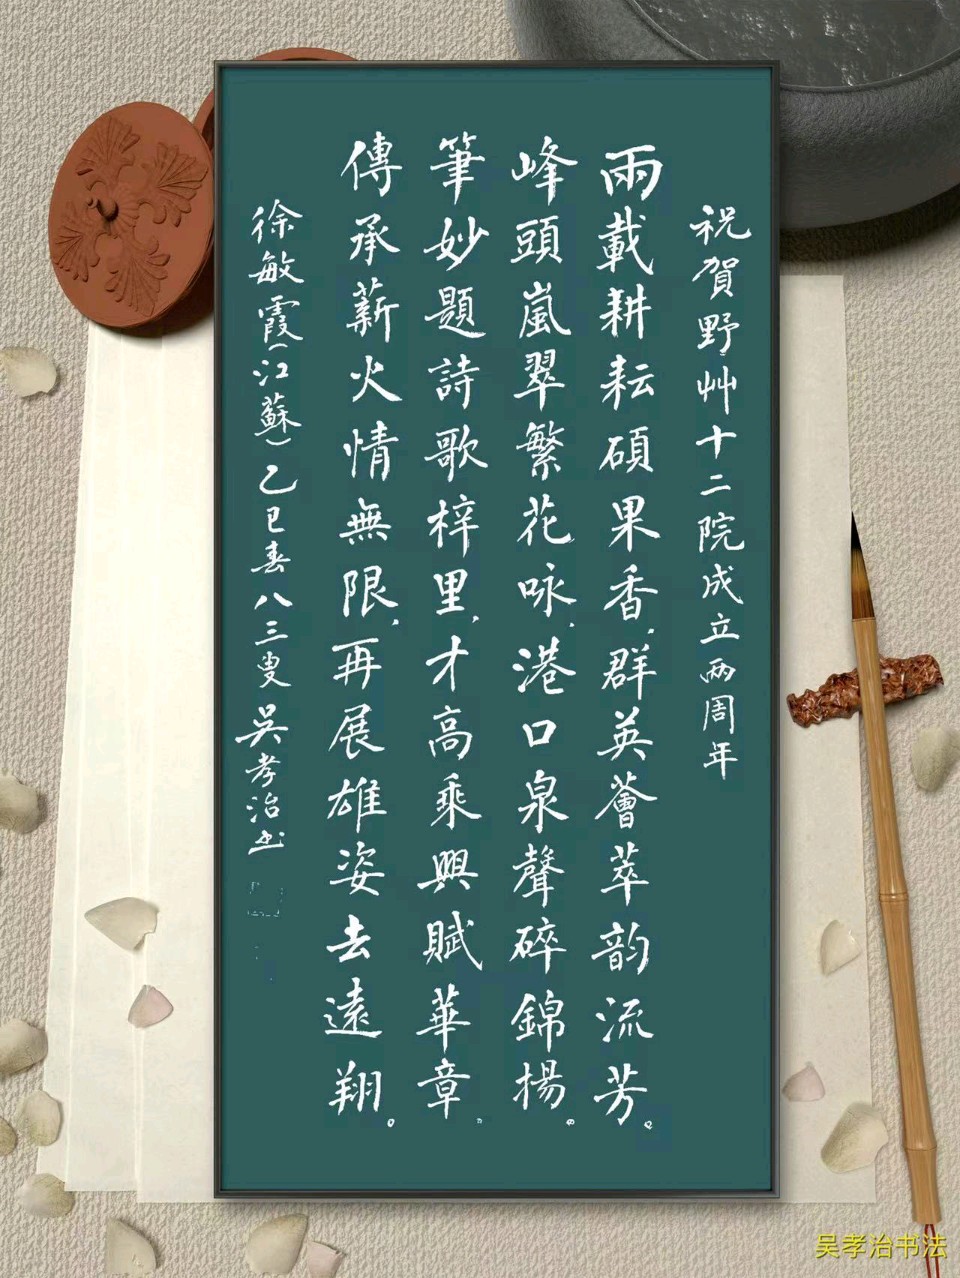 祝賀野艸十二院成立两周年
雨載耕耘碩果香，群英薈萃韵流芳。
峰頭嵐翠繁花咏，港口泉聲碎錦揚。
筆妙題詩歌梓里，才高乘興賦華章。
傳承薪火情無限，再展雄姿去遠翔。
徐敏霞（江蘇）乙巳春八三叟吳孝治书
吴孝治书法